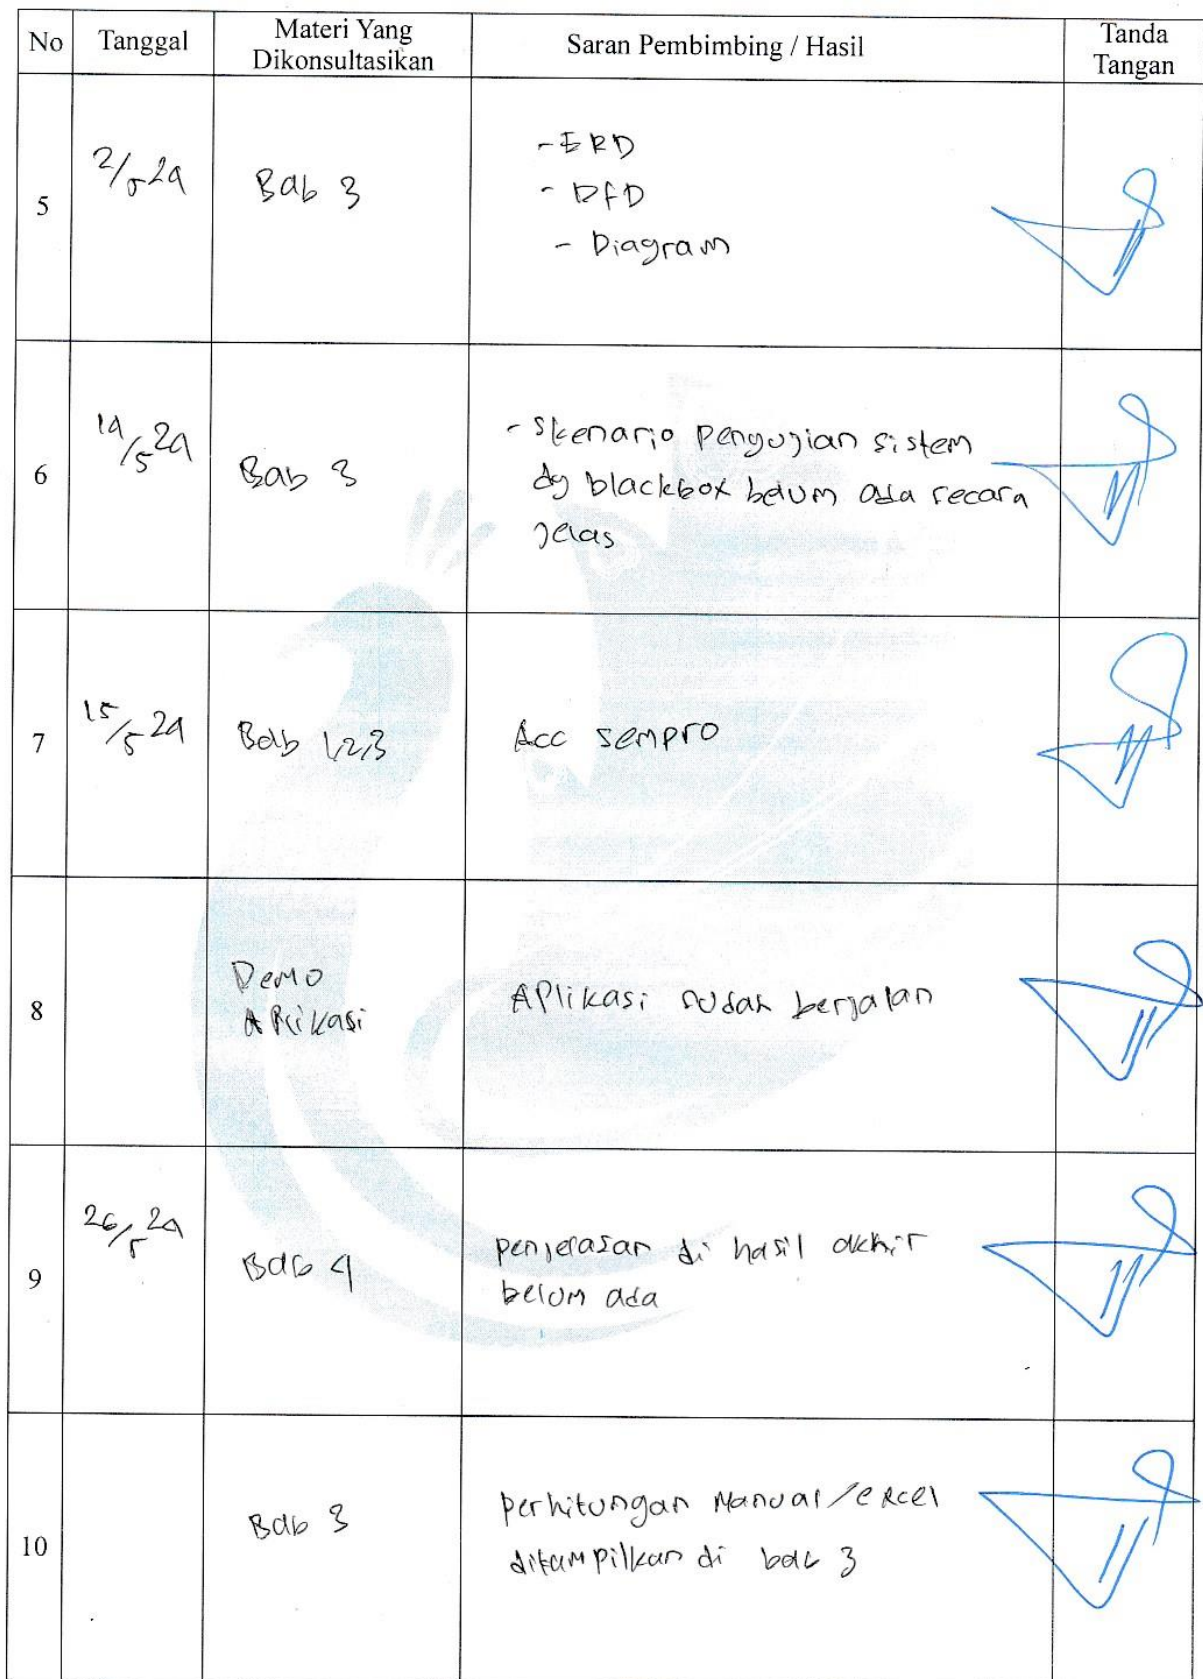 No Tanggal Materi Yang Dikonsultasikan Saran Pembimbing / Hasil Tanda Tangan
5 2/5 24 Bab 3 - ERD
- DFD
- Diagram
6 14/5 24 Bab 3 - Skenario pengujian sistem
dg blackbox belum ada secara
jelas
7 15/5 24 Bab 1,2,3 Acc sempro
8 Demo
Aplikasi Aplikasi sudah berjalan
9 26/5 24 Bab 4 penjelasan di hasil akhir
belum ada
10 Bab 3 perhitungan Manual/excel
ditampilkan di bab 3